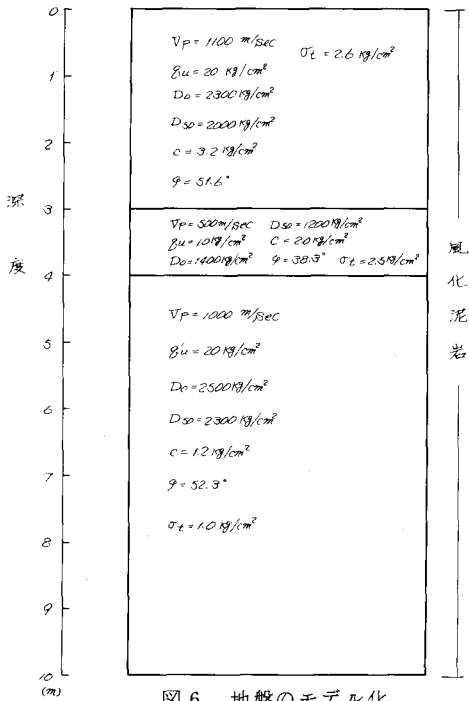 0
1
2
3
4
5
6
7
8
9
10
(m)
深度
Vp = 1100 m/sec
σt = 2.6 kg/cm²
qu = 20 kg/cm²
D0 = 2300 kg/cm²
D50 = 2000 kg/cm²
c = 3.2 kg/cm²
φ = 51.6°
Vp = 500 m/sec D50 = 1200 kg/cm²
qu = 10 kg/cm² C = 20 kg/cm²
D0 = 1400 kg/cm² φ = 38.3° σt = 2.5 kg/cm²
Vp = 1000 m/sec
qu = 20 kg/cm²
D0 = 2500 kg/cm²
D50 = 2300 kg/cm²
c = 1.2 kg/cm²
φ = 52.3°
σt = 1.0 kg/cm²
風化泥岩
図6 地盤のモデル化